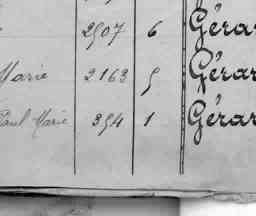 2907 6 Gérar
Marie 2163 5 Gérar
Paul Marie 354 1 Gérar